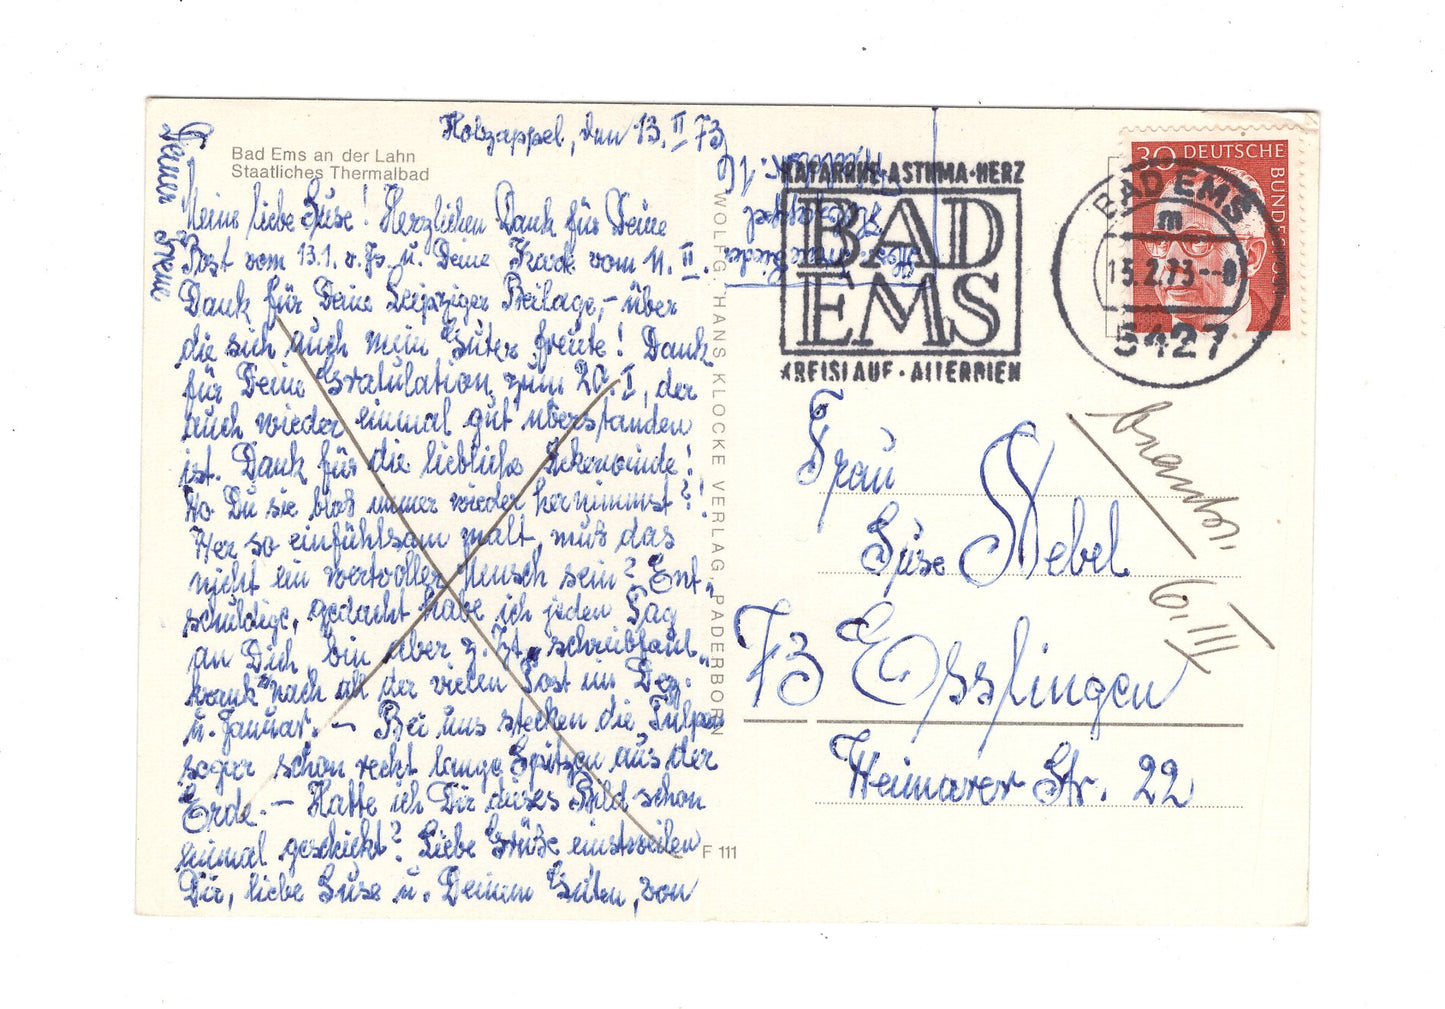 Holzappel, den 13. II 73
Bad Ems an der Lahn
Staatliches Thermalbad
Meine liebe Suse! Herzlichen Dank für Deine
Post vom 13.1. v. Js. u. Deine Karte vom 11. II.
Dank für Deine Leipziger Beilage, – über
die sich auch mein Guter freute! Dank
für Deine Gratulation zum 20. I, der
auch wieder einmal gut überstanden
ist. Dank für die liebliche
Wo Du sie bloß immer wieder hernimmst?!
Wer so einfühlsam malt, muß das
nicht ein wertvoller Mensch sein? Ent-
schuldige, gedacht habe ich jeden Tag
an Dich, bin aber z. Zt. „schreibfaul-
krank" nach all der vielen Post im Dez.
u. Januar. – Bei uns stecken die Tulpen
sogar schon recht lange Spitzen aus der
Erde. – Hatte ich Dir dieses Bild schon
einmal geschickt? Liebe Grüße einstweilen
Dir, liebe Suse u. Deinem Guten, von
Deiner
F 111
WOLFG. HANS KLOCKE VERLAG, PADERBORN
Holzappel
KATARRHE·ASTHMA·HERZ
BAD
EMS
KREISLAUF·ALTERN
BAD EMS
m
13.2.73--8
5427
30 DEUTSCHE
BUNDESPOST
Frau
Suse Nebel
73 Esslingen
Weimarer Str. 22
6. III